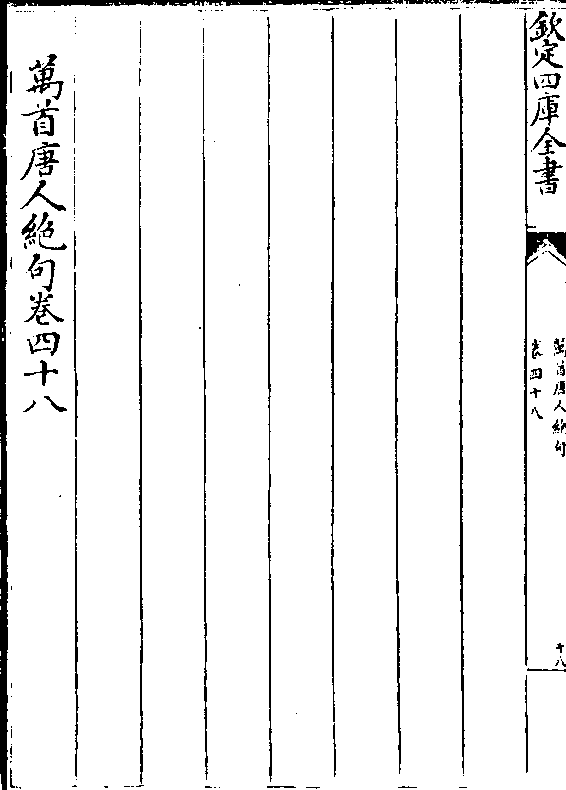 欽定四庫全書
萬首唐人絶句
卷四十八
十八
萬首唐人絶句卷四十八